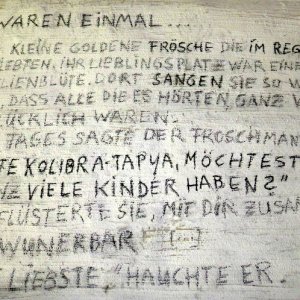 WAREN EINMAL....
KLEINE GOLDENE FRÖSCHE DIE IM REG
LEBTEN. IHR LIEBLINGSPLATZ WAR EINE
LIENBLÜTE. DORT SANGEN SIE SO W
, DASS ALLE DIE ES HÖRTEN, GANZ V
ÜCKLICH WAREN.
TAGES SAGTE DER FROSCHMAN
TE KOLIBRA-TAPYA, MÖCHTEST
NZ VIELE KINDER HABEN?"
FLÜSTERTE SIE, MIT DIR ZUSA
WUNERBAR
LIEBSTE," HAUCHTE ER.